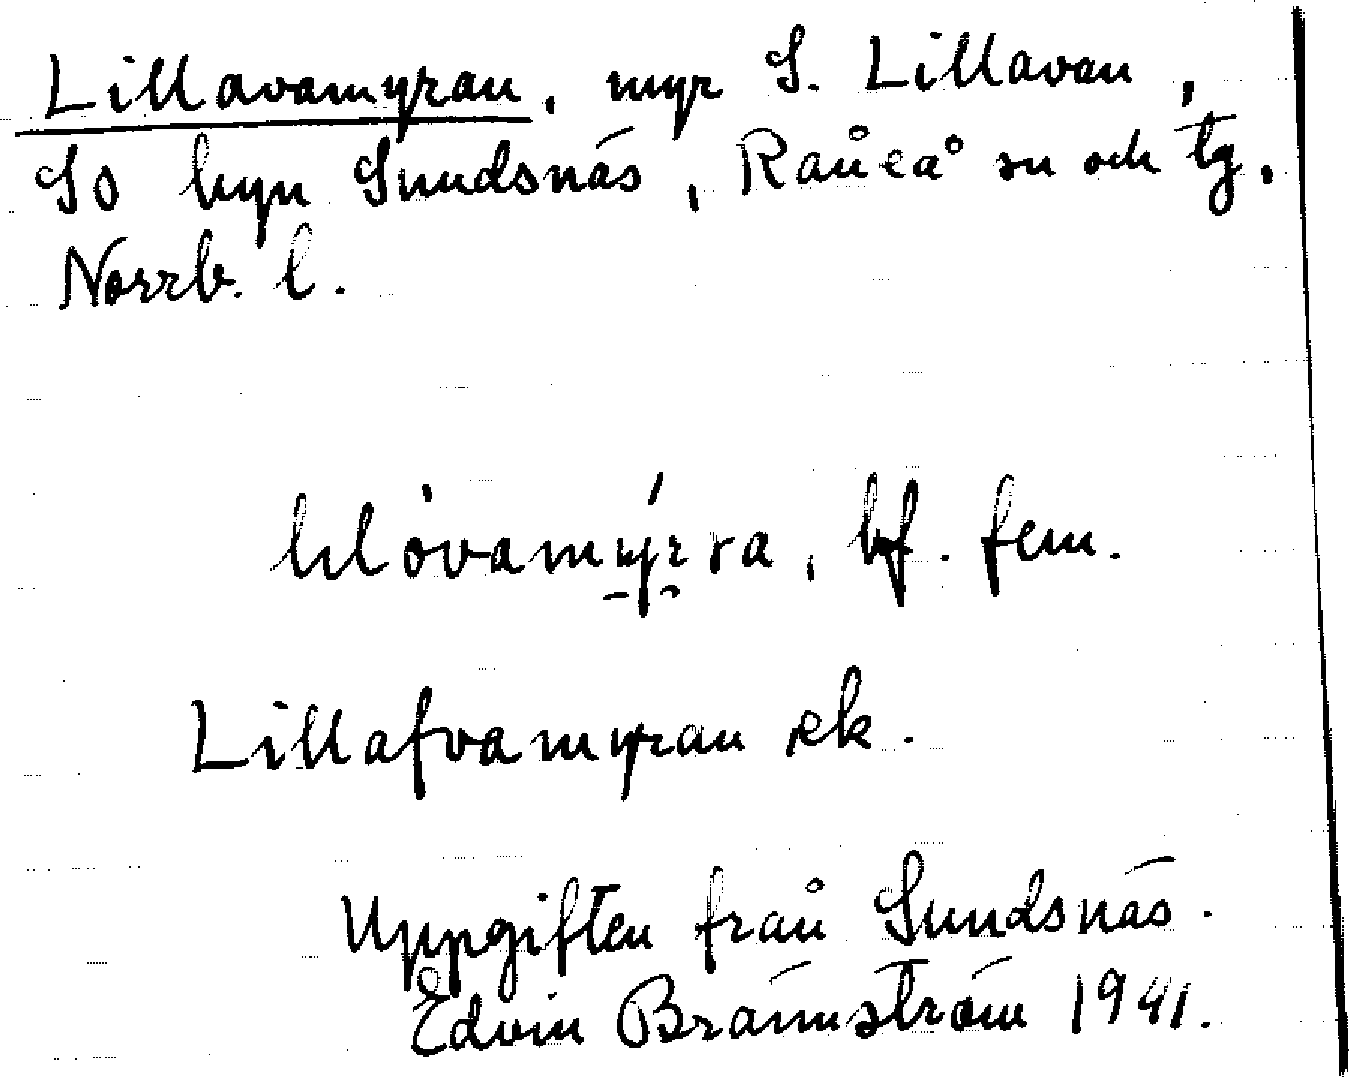 Lillavamyran, myr S. Lillavan,
SO byn Sundsnäs, Råneå sn och tg,
Norrb. l.
bf. fem.
Lillafvamyran ek.
Uppgiften från Sundsnäs.
Edvin Brännström 1941.